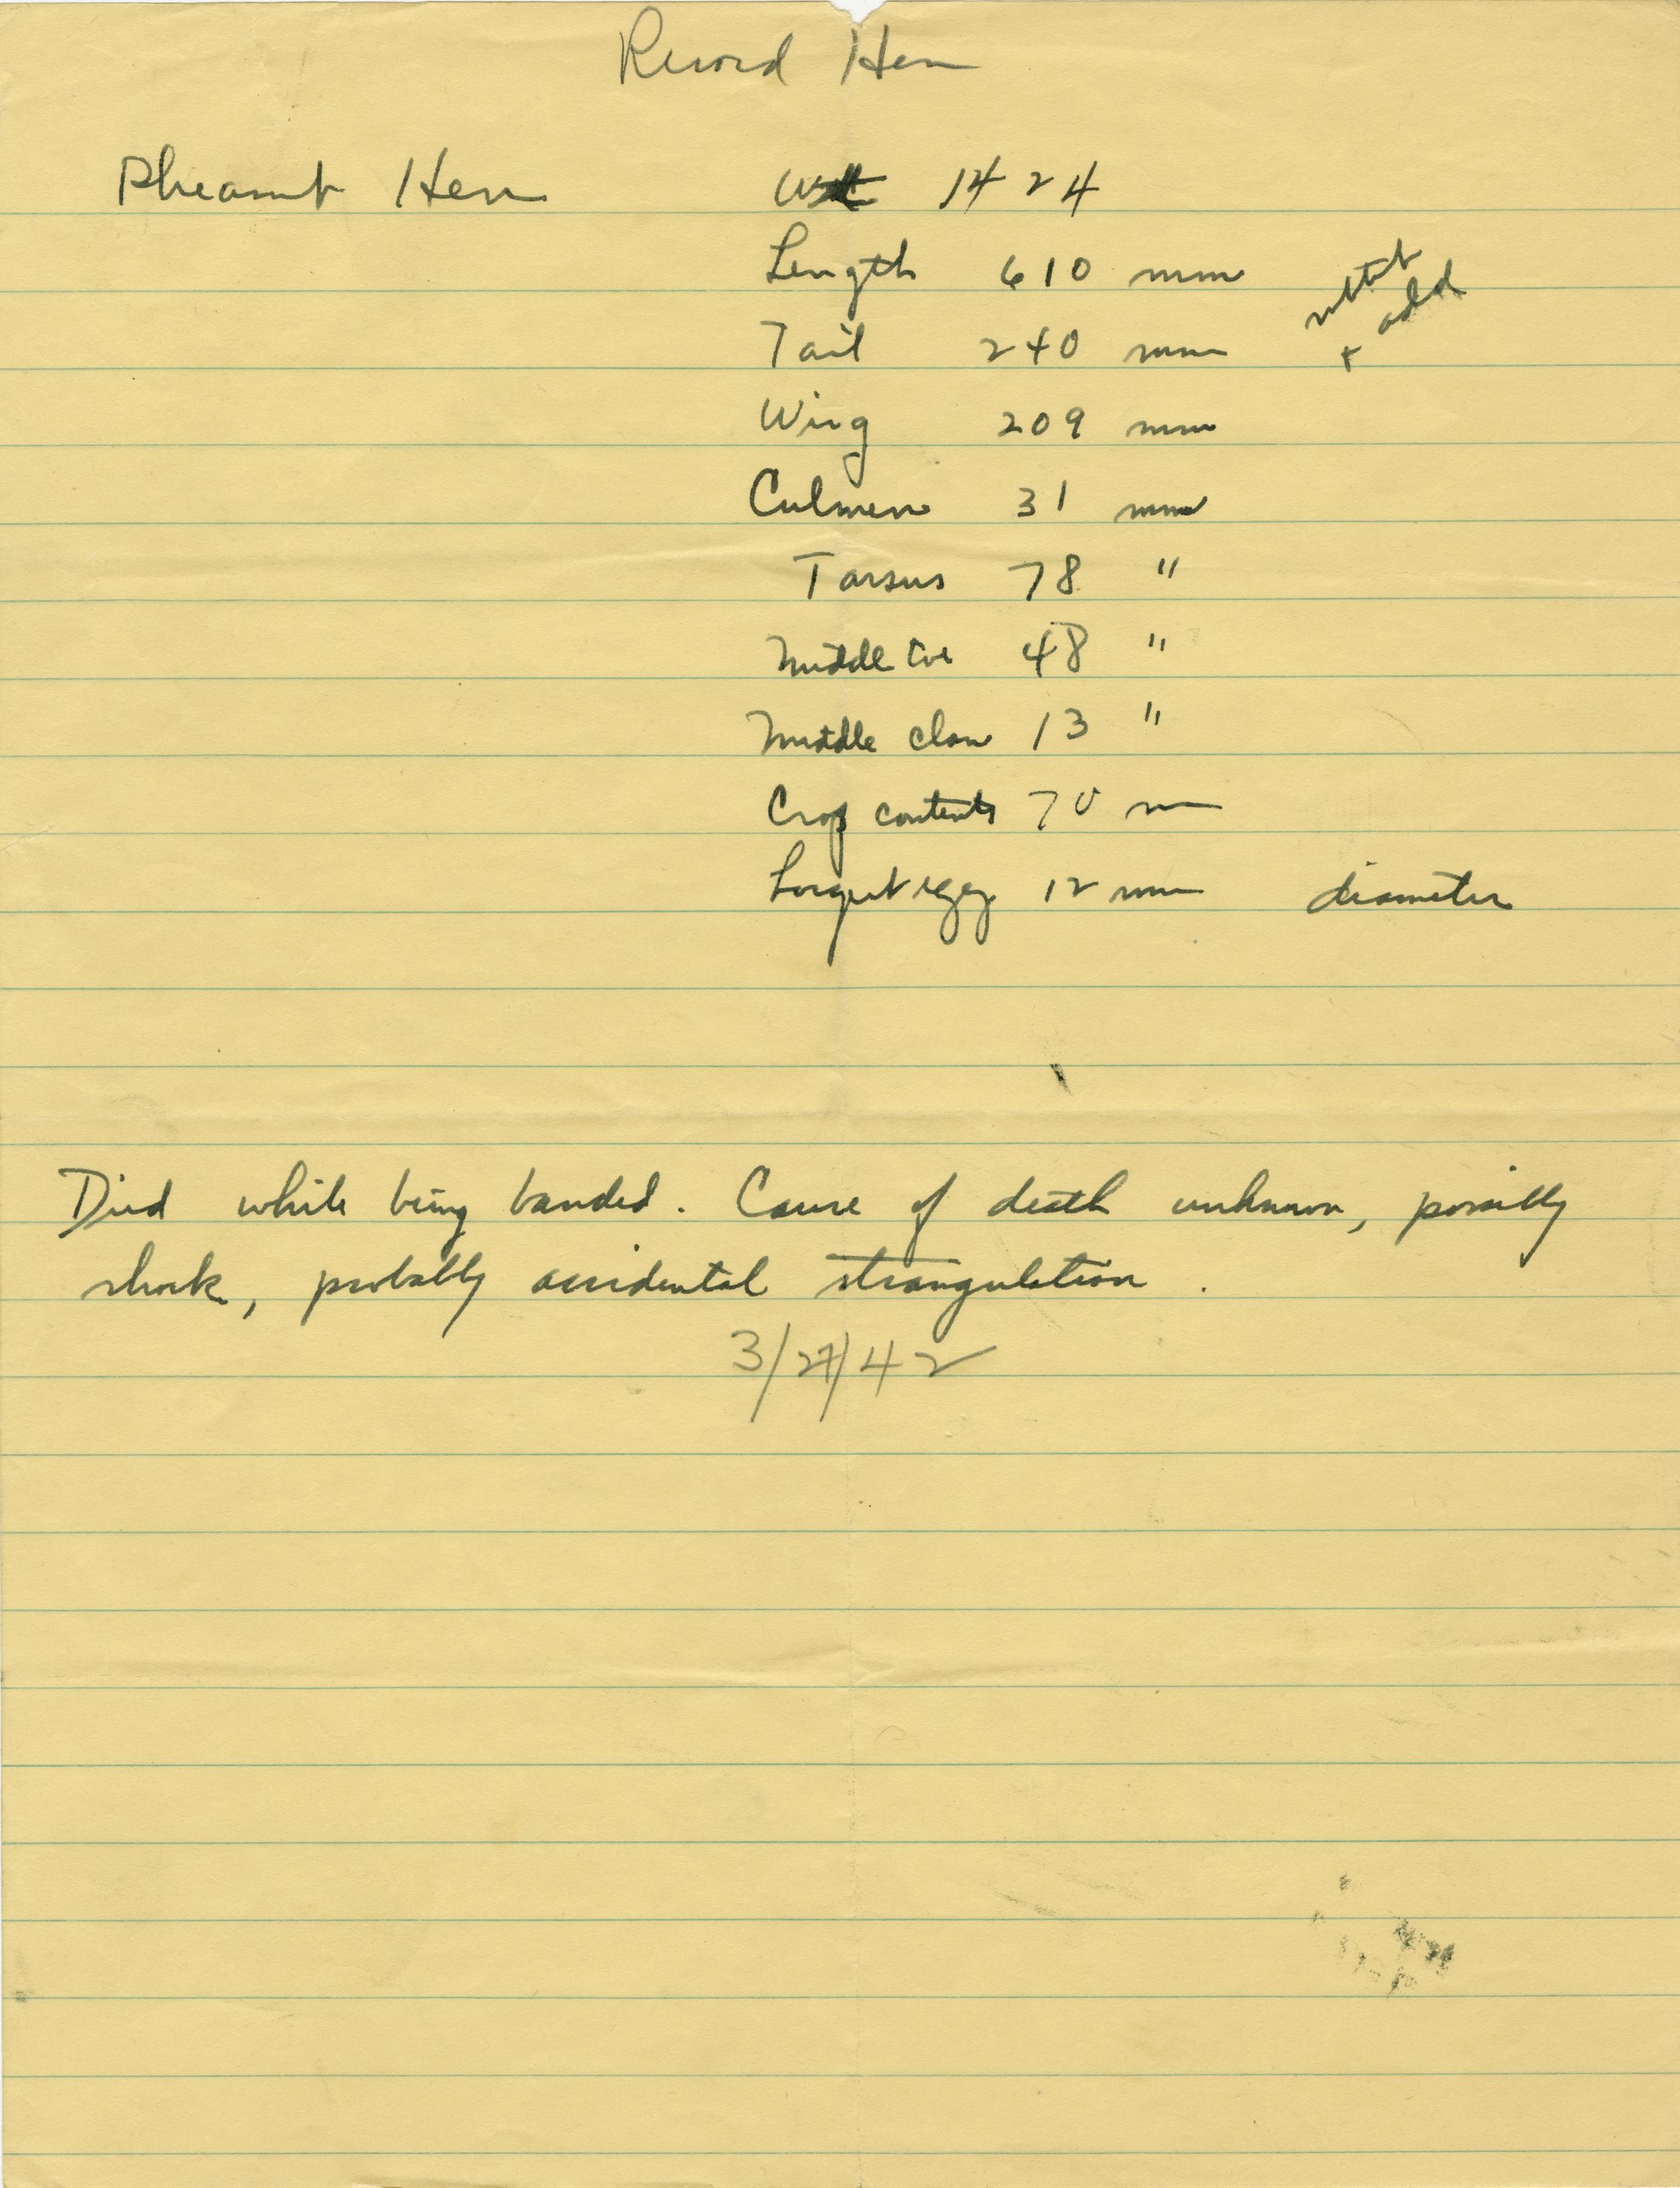 Record Hen
Pheasant Hen Wt 1424
Length 610 mm
subtract
+ add
Tail 240 mm
Wing 209 mm
Culmen 31 mm
Tarsus 78 "
Middle toe 48 "
Middle claw 13 "
Crop contents 70
Largest egg 12 mm diameter
Died while being banded. Cause of death unknown, possibly
shock, probably accidental strangulation.
3/27/42